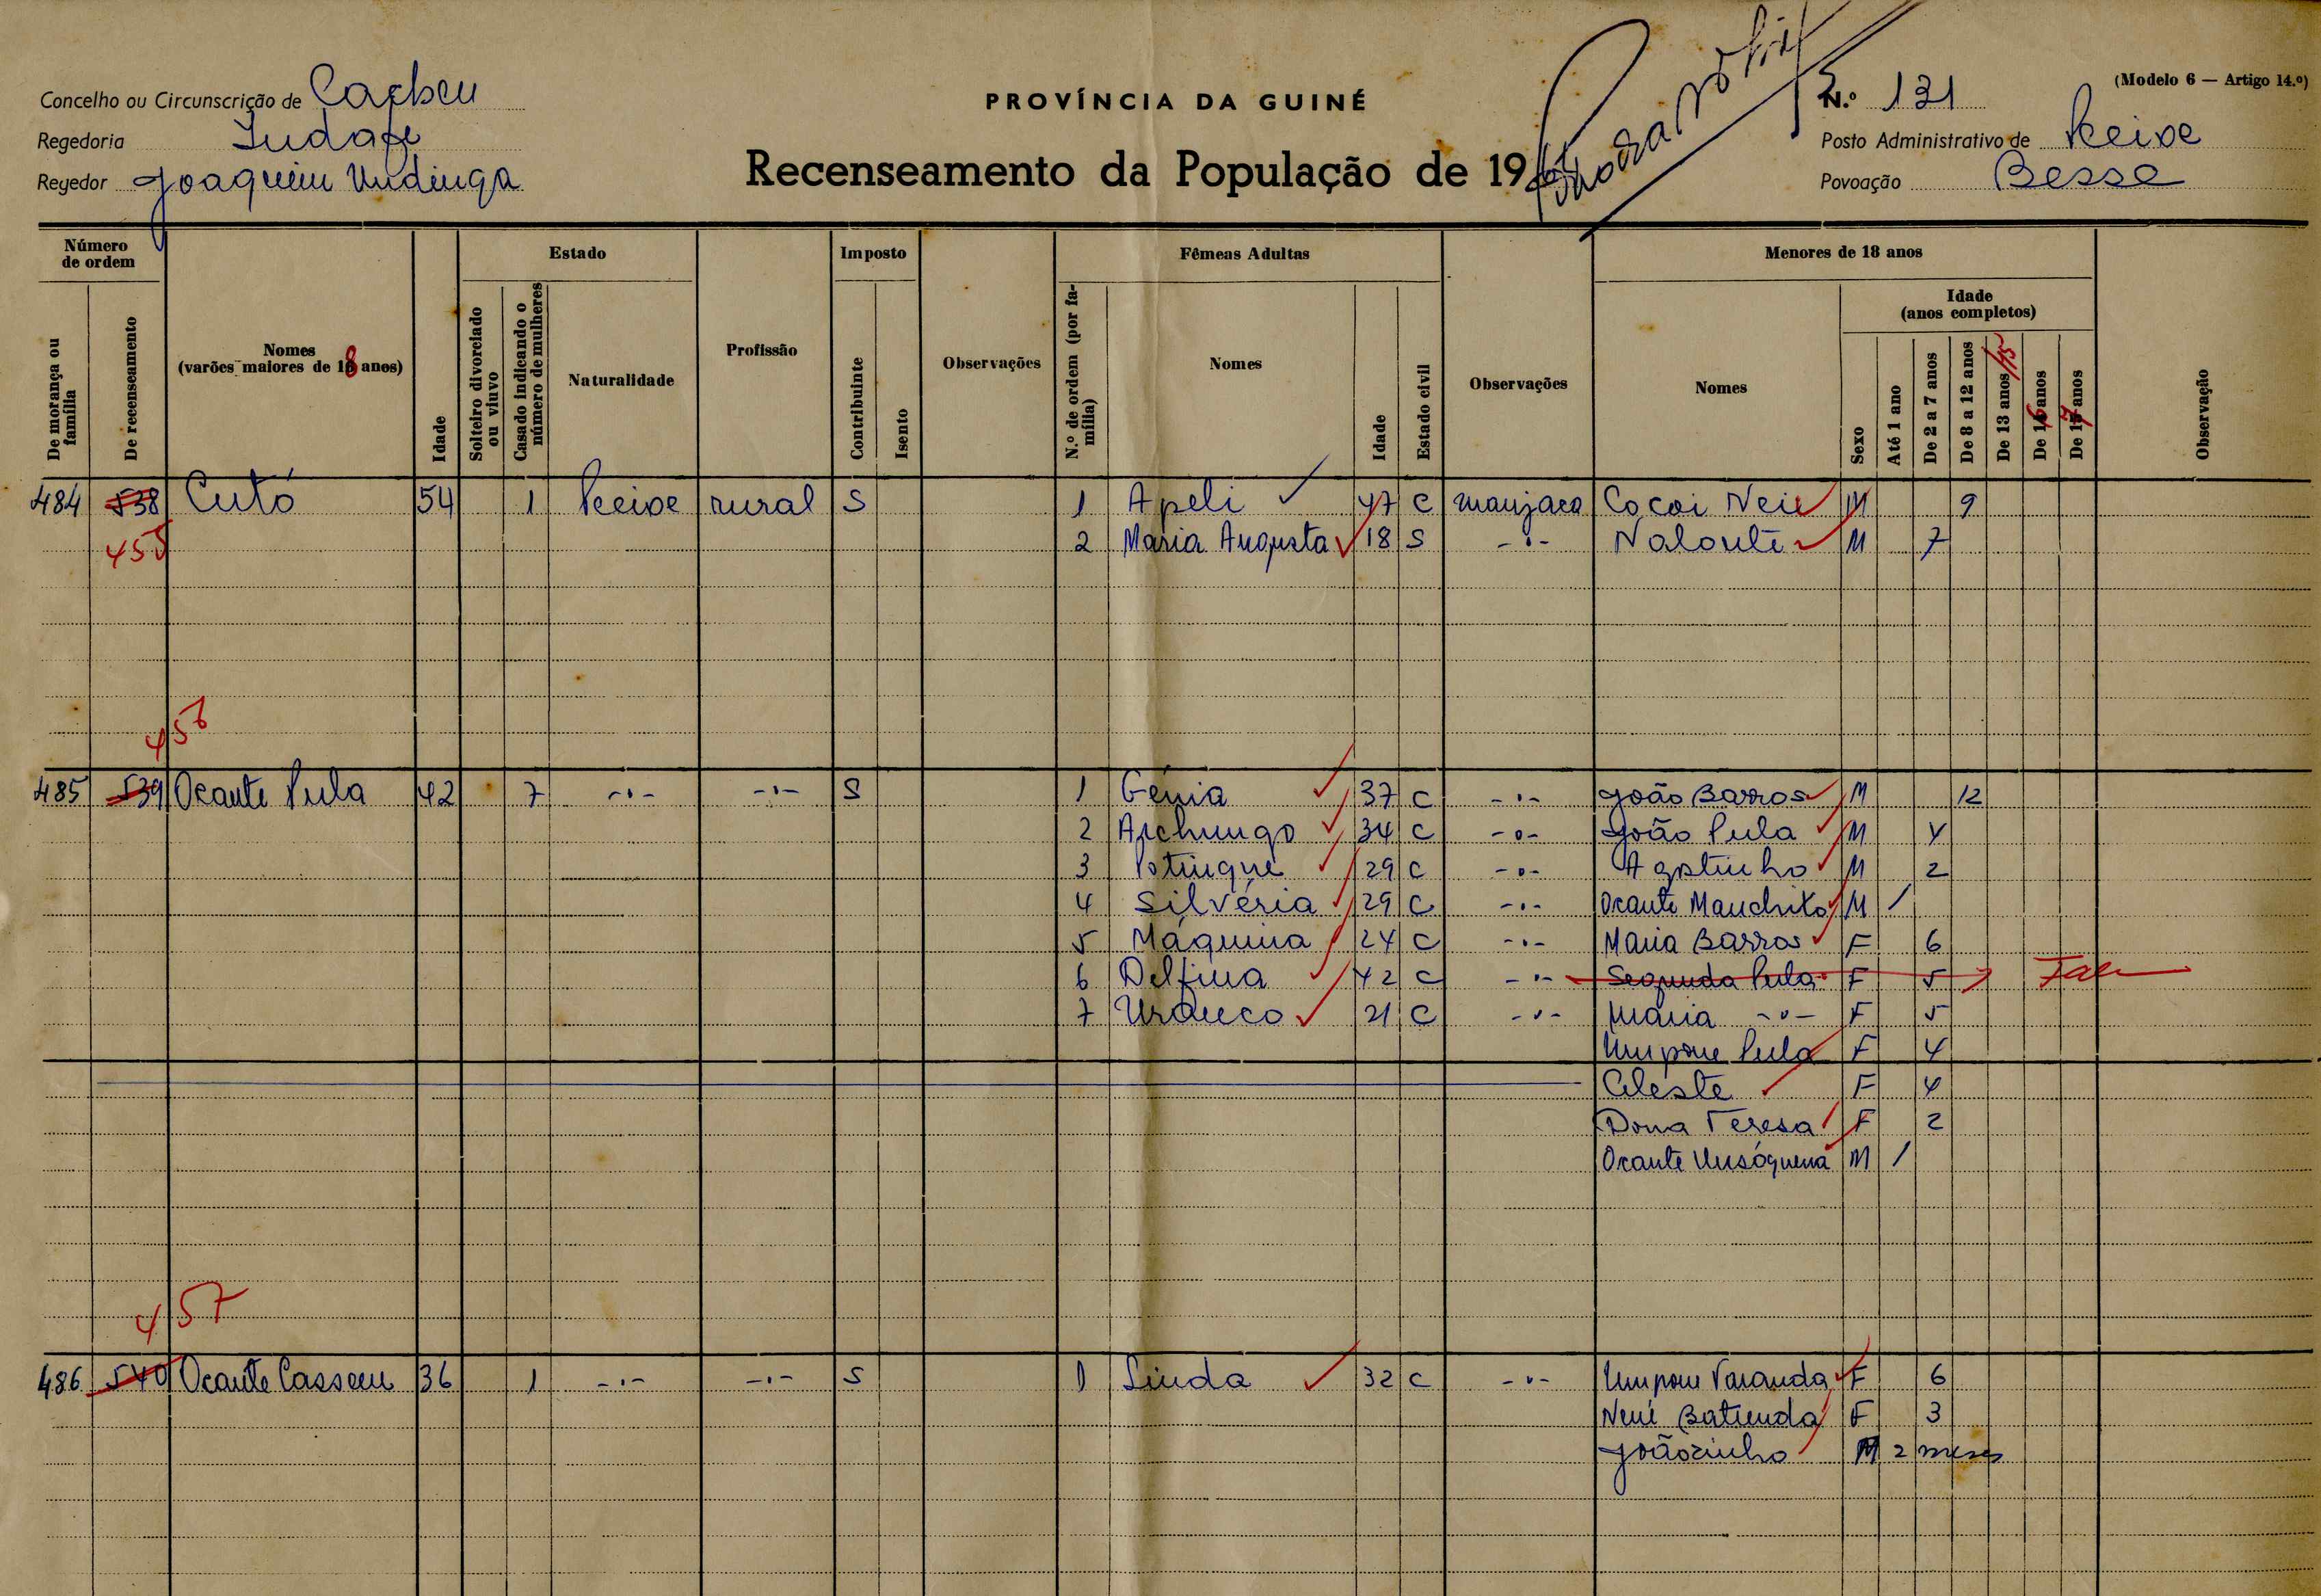 Concelho ou Circunscrição de Cacheu
Regedoria
Regedor Joaquim Undinga
PROVÍNCIA DA GUINÉ
Recenseamento da População de 19
(Modelo 6 — Artigo 14.º)
N.º 131
Posto Administrativo de
Povoação Besse
Número de ordem
De morança ou família
De recenseamento
Nomes (varões maiores de 18 anos)
Idade
Estado
Solteiro divorciado ou viuvo
Casado indicando o número de mulheres
Naturalidade
Profissão
Imposto
Contribuinte
Isento
Observações
Fêmeas Adultas
N.º de ordem (por família)
Nomes
Idade
Estado civil
Observações
Menores de 18 anos
Nomes
Sexo
Idade (anos completos)
Até 1 ano
De 2 a 7 anos
De 8 a 12 anos
De 13 anos /15
De 16 anos
De 17 anos
Observação
484 538 Cutó 54 1 rural S 1 Apeli 47 C manjaca Cocoi M 9
455 2 Maria Augusta 18 S -"- Naloute M 7
456
485 539 Ocante Pula 42 7 -"- -"- S 1 Génia 37 C -"- João Barros M 12
2 Archungo 34 C -"- João Pula M 4
3 29 C -"- Agostinho M 2
4 Silvéria 29 C -"- Ocante Manchito M /
5 Máquina 24 C -"- Maria Barros F 6
6 Delfina 42 C -"- Segunda Pula F 5
7 21 C -"- Maria -"- F 5
Umpone Pula F 4
Celeste F 4
Dona Teresa F 2
Ocante M /
457
486 540 Ocante Cassem 36 1 -"- -"- S 1 Linda 32 C -"- F 6
F 3
Joãozinho M 2 meses